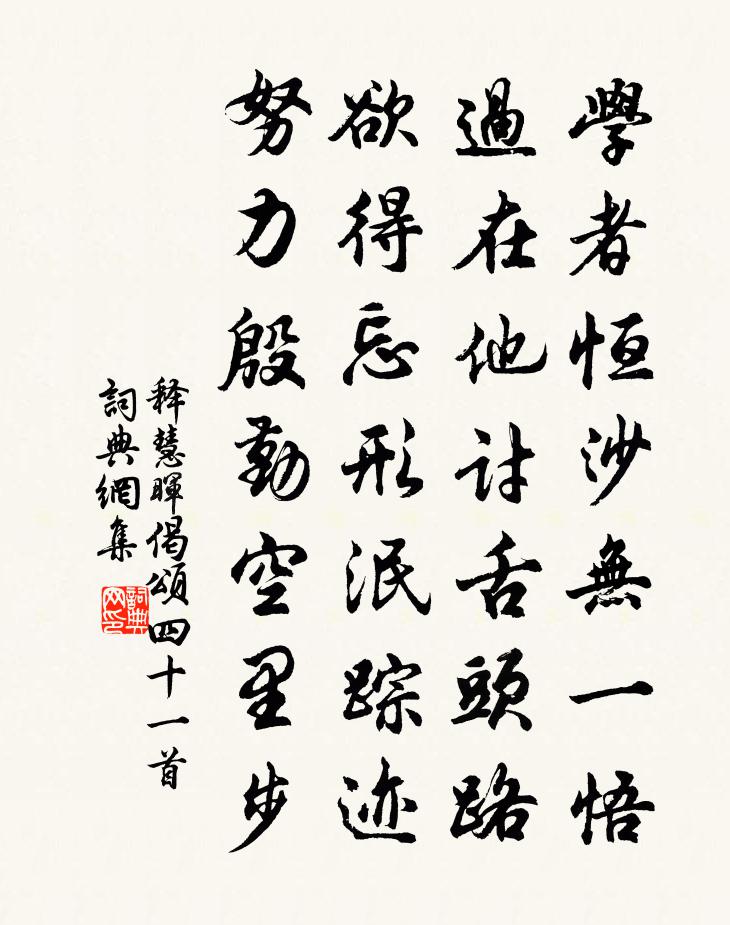 學者恆沙無一悟
過在他討舌頭路
欲得忘形泯踪迹
努力殷勤空里步
释慧暉偈頌四十一首
詞典網集
詞典網印